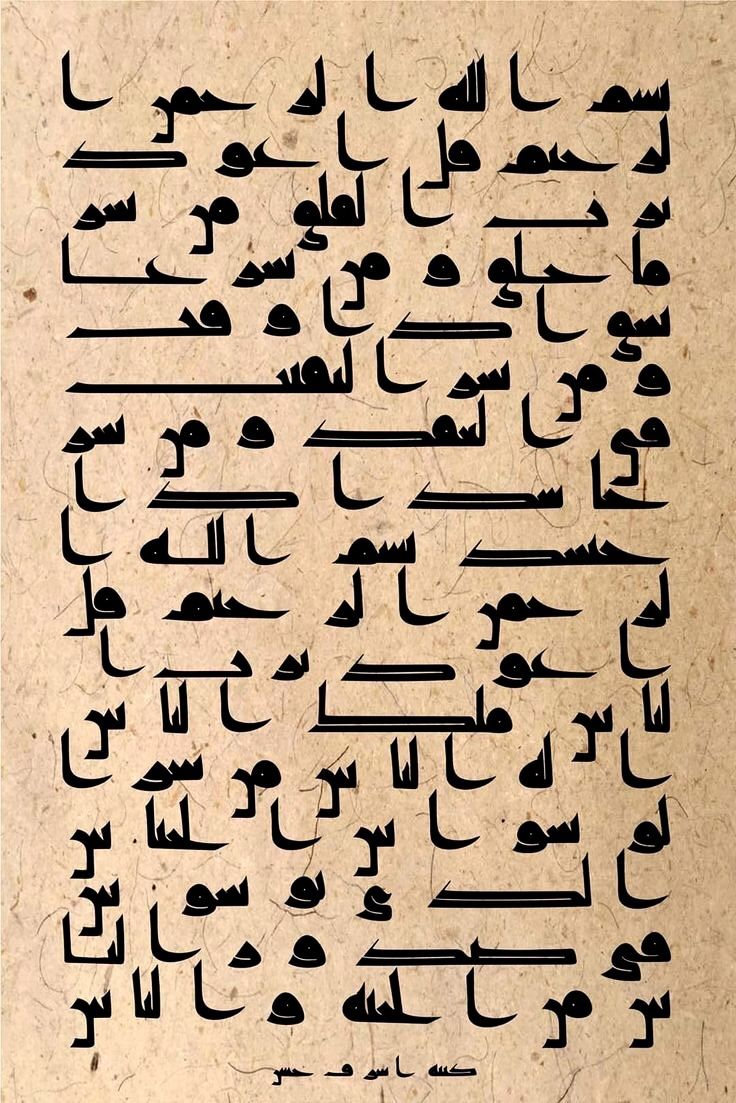 بسم الله الرحمن ا
لرحيم قل اعوذ
برب الفلق من شر
ما خلق و من شر غا
سق اذا وقب
و من شر النفثت
في العقد و من شر
حاسد اذا
حسد بسم الله ا
لرحمن الرحيم قل
اعوذ برب ا
لناس ملك الناس
اله الناس من شر ا
لوسواس الخناس
الذي يوسوس
في صدور النا
س من الجنة و الناس
كتبه